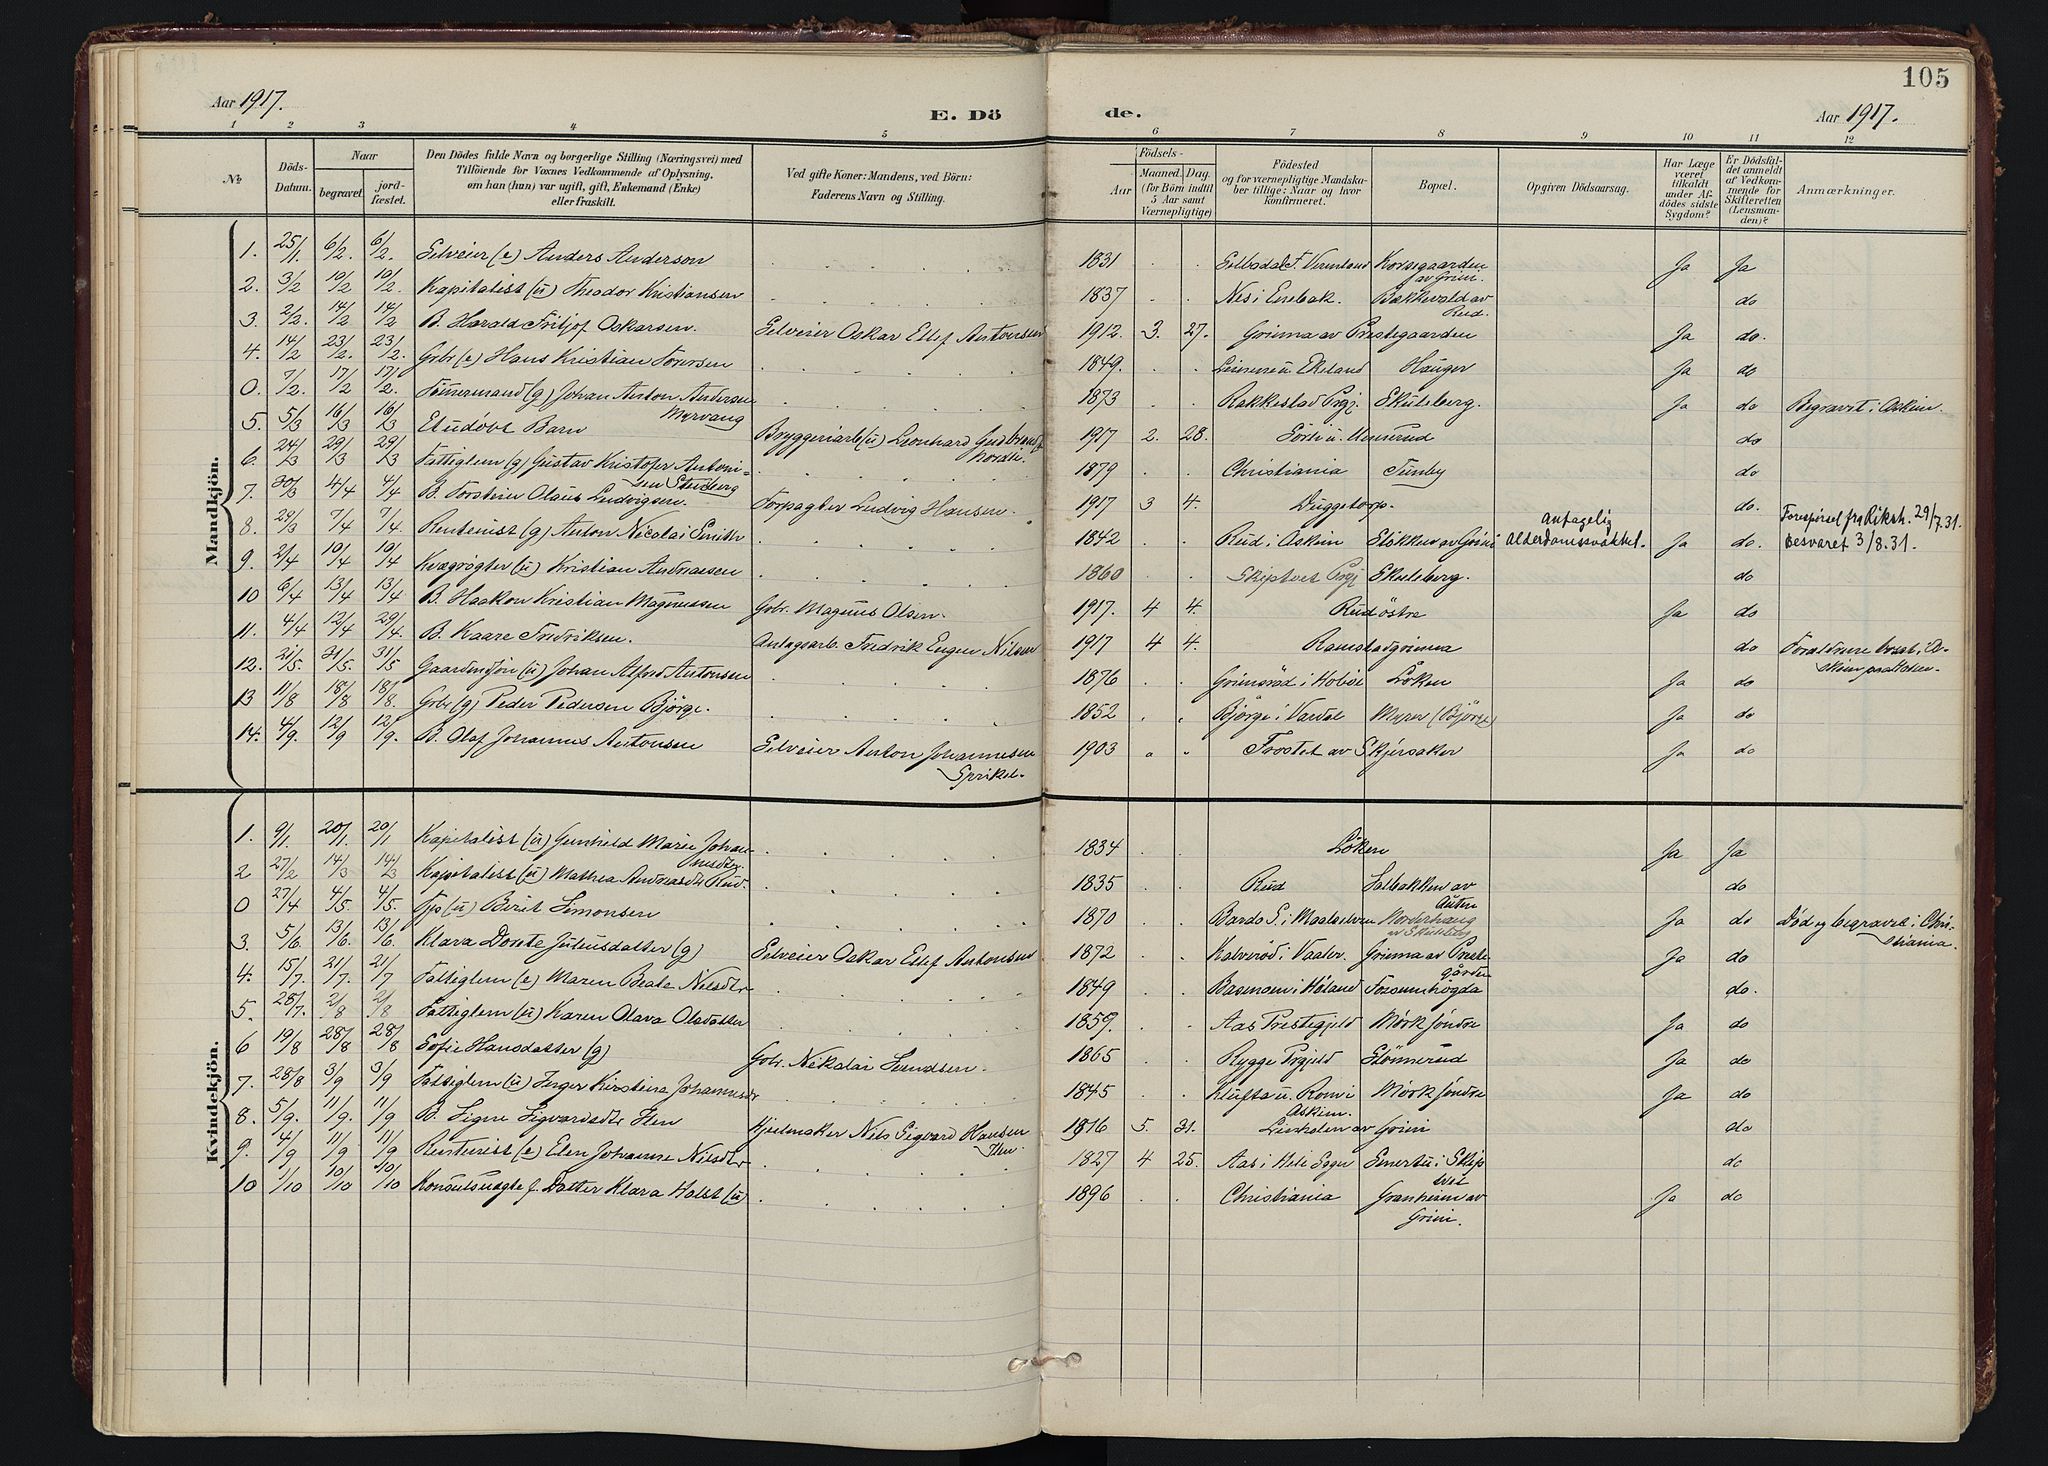 105
Aar 1917.
E. Dö de.
Aar 1917.
1 2 3 4 5 6 7 8 9 10 11 12
№
Döds-Datum.
Naar
begravet.
jord-fæstet.
Den Dödes fulde Navn og borgerlige Stilling (Næringsvei) med
Tilföiende for Voxnes Vedkommende af Oplysning,
om han (hun) var ugift, gift, Enkemand (Enke)
eller fraskilt.
Ved gifte Koner: Mandens, ved Börn:
Faderens Navn og Stilling.
Födsels-
Aar
Maaned. Dag.
(for Börn indtil
5 Aar samt
Værnepligtige)
Födested
og for værnepligtige Mandska-
ber tillige: Naar og hvor
konfirmeret.
Bopæl.
Opgiven Dödsaarsag.
Har Læge
været
tilkaldt
under Af-
dödes sidste
Sygdom?
Er Dödsfal-
det anmeldt
af Vedkom-
mende for
Skifteretten
(Lensman-
den)?
Anmærkninger.
Mandkjön.
1. 25/1 6/2 6/2 Selveier (e) Anders Anderson 1831 Vermland Korsegaarden av Grini Ja Ja
2. 3/2 10/2 10/2 Kapitalist (u) Theodor Kristiansen 1837 Nes i Enebak. Bakkevold av Rud. do
3. 2/2. 14/2 14/2 B. Harald Fritjof Oskarsen. Selveier Oskar Ellef Antonsen 1912. 3. 27. Grinna av Prestegaarden Ja do.
4. 14/2 23/2. 23/2. Grbr (e) Hans Kristian 1849. Ekeland Hauger Ja do
0. 7/2. 17/2 17/2. Tömmermand (g) Johan Anton Andersen Myrvang 1873 Rakkestad Prgj. Skuleberg. Ja do Begravet i Askim.
5. 5/3 16/3 16/3 Et udöbt Barn Bryggeriarb (u) Leonhard Gudbrand 1917 2. 28. do
6. 24/3 29/3 29/3 Fattiglem (g) Gustav Kristofer Antoni-sen Stenberg 1879 Christiania Tunby do
7. 30/3 4/4 4/4 B. Torstein Olaus Ludvigsen. Forpagter Ludvig Hansen. 1917 3 4. Duggetorp. do.
8. 29/3 7/4 7/4. Rentenist (g) Anton Nicolai Smith 1842 Rud i Askim Stökken av Grini antagelig Alderdomssvakkel. Ja do. Forespörsel fra Riksh. 29/7.31. Besvaret 3/8.31.
9. 2/4 10/4 10/4 Kvægrögter (u) Kristian Andreassen 1860 Skiptvet Prgj Skuleberg. do
10 6/4 13/4 13/4 B. Haakon Kristian Magnussen Gbr. Magnus Olsen. 1917. 4 4. Rud östre Ja do
11. 4/4 12/4 29/4. B. Kaare Fredriksen. Anlagsarb. Fredrik Eugen Nilsen 1917 4 4. Ramstadgrinna do Foreldrene bosat i Askim
12. 21/5. 31/5. 31/5 Johan Alfred Antonsen 1876 i Hoböl Löken Ja do
13 11/8 18/8 18/8. Grbr (g) Peder Pedersen Björge. 1852 Björge i Vardal Myrer (Björge) Ja do
14. 4/9. 12/9 12/9. B. Olaf Johannes Antonsen Selveier Anton Johannesen 1903 av Skjersaker Ja do
Kvindekjön.
1. 9/1. 20/1 20/1 Kapitalist (u) Gunhild Marie Johannesdtr. 1834 Löken Ja Ja
2 27/2 14/3 14/3 Kapitalist (u) Mathea Andreasdtr Rud. 1835 Rud Solbakken av Auten do
0 27/4 4/5. 4/5. Tjp (u) Berit Simonsen 1870 Bardo S. i Maalselven Nordenhaug av Skuleberg Ja do Död og begravet i Christiania.
3. 5/6 13/6. 13/6. Klara Dorete Juliusdatter (g) Selveier Oskar Ellef Antonsen 1872 i Vaaler. Grinna av Prestegården Ja do
4. 15/7. 21/7. 21/7 Fattiglem (e) Maren Beate Nilsdtr 1849 i Höland do.
5. 28/7. 2/8 2/8 Fattiglem (u) Karen Olava Olsdatter 1859. Aas Prestegjeld Mörk söndre Ja do
6 19/8 28/8 28/8 Sofie Hansdatter (g) Gbr. Nikolai Svendsen. 1865 Rygge Prgjeld Stömerud Ja do
7. 28/8 3/9 3/9 Fattiglem (u) Inger Kirstine Johannesdtr 1845 Klufta u. Rom i Askim. Mörk söndre Ja do
8. 5/9. 11/9. 11/9 B. Signe Sigvardsdtr Hen Hjulmaker Nils Sigvard Hansen Hen. 1916 5. 31. av Grini do
9. 4/9 11/9 11/9 Rentenist (e) Elen Johanne Nilsdtr 1827 4 25. Aas i Heli Sogn i Skiptvet do
10 1/10 10/10 10/10 Datter Klara Holst (u) 1896 Christiania Granheim av Grini. Ja do